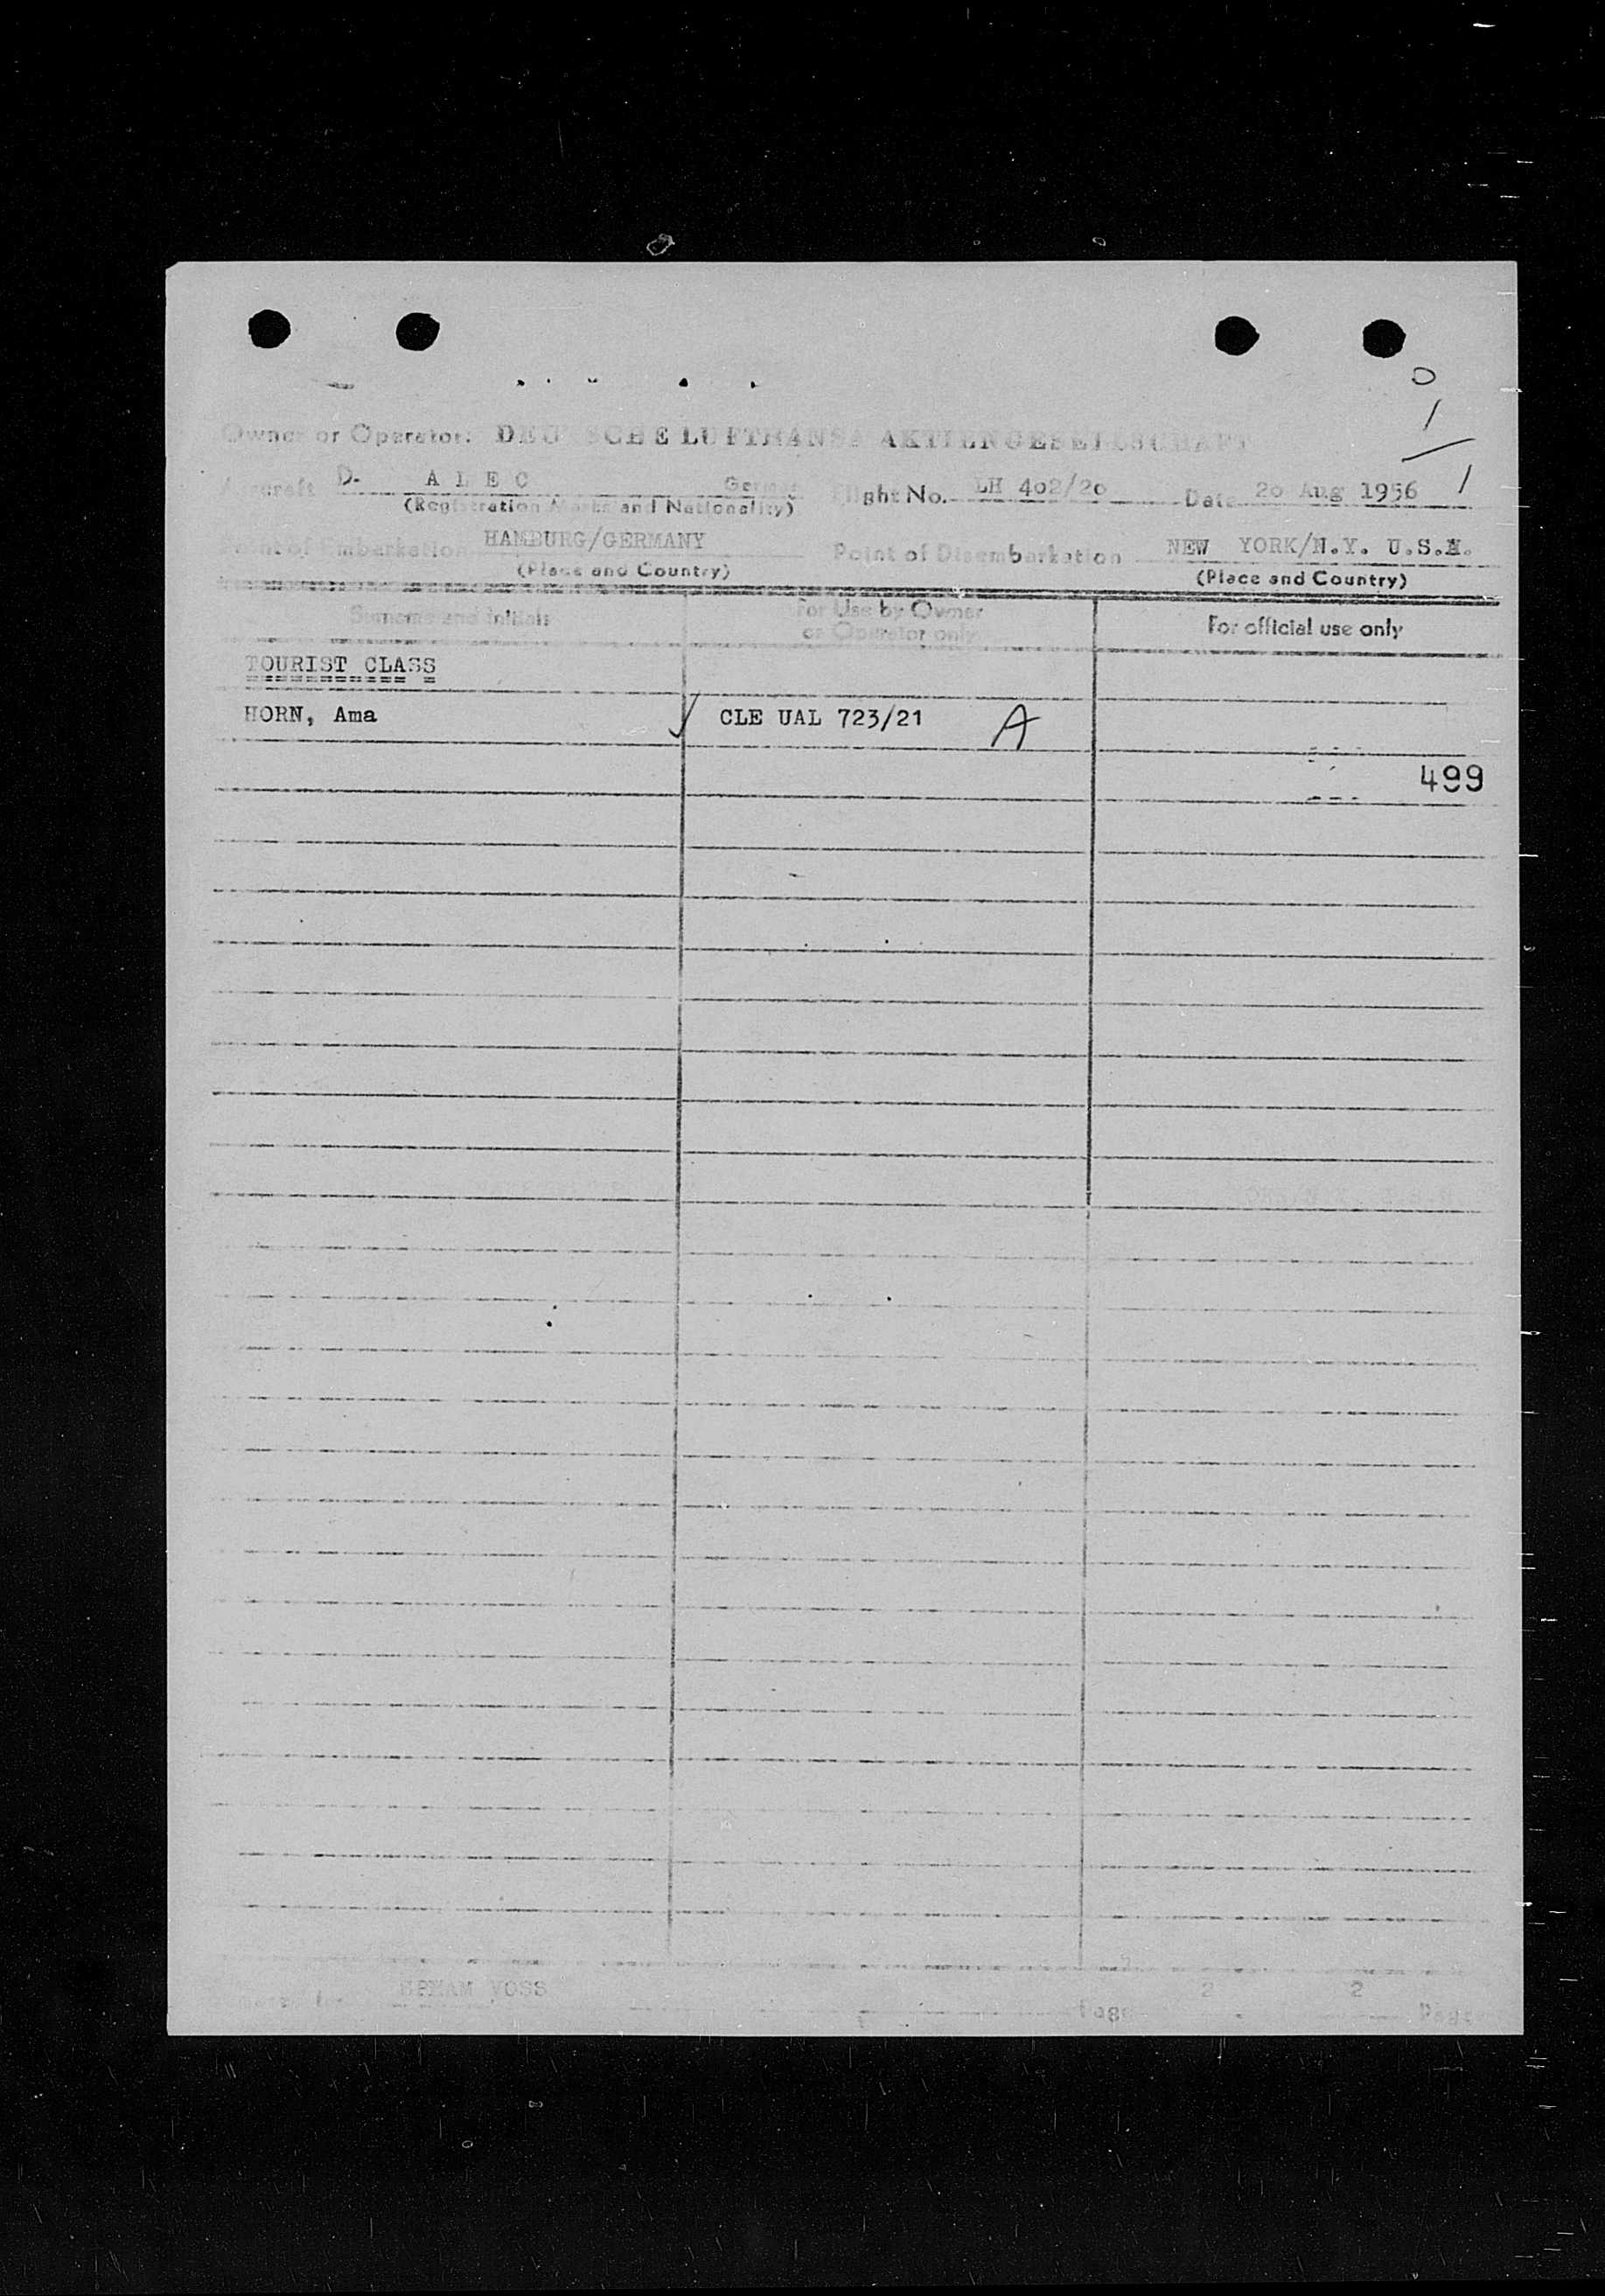 0
1
Owner or Operator: DEUTSCHE LUFTHANSA AKTIENGESELLSCHAFT
1
Aircraft D- A L E C German Flight No. LH 402/20 Date 20 Aug 1956
(Registration Marks and Nationality)
Point of Embarkation HAMBURG/GERMANY Point of Disembarkation NEW YORK/N.Y. U.S.A.
(Place and Country) (Place and Country)
Surname and Initials For Use by Owner or Operator only For official use only
TOURIST CLASS
HORN, Ama ✓ CLE UAL 723/21 A
499
VOSS Page 2 2 Pages